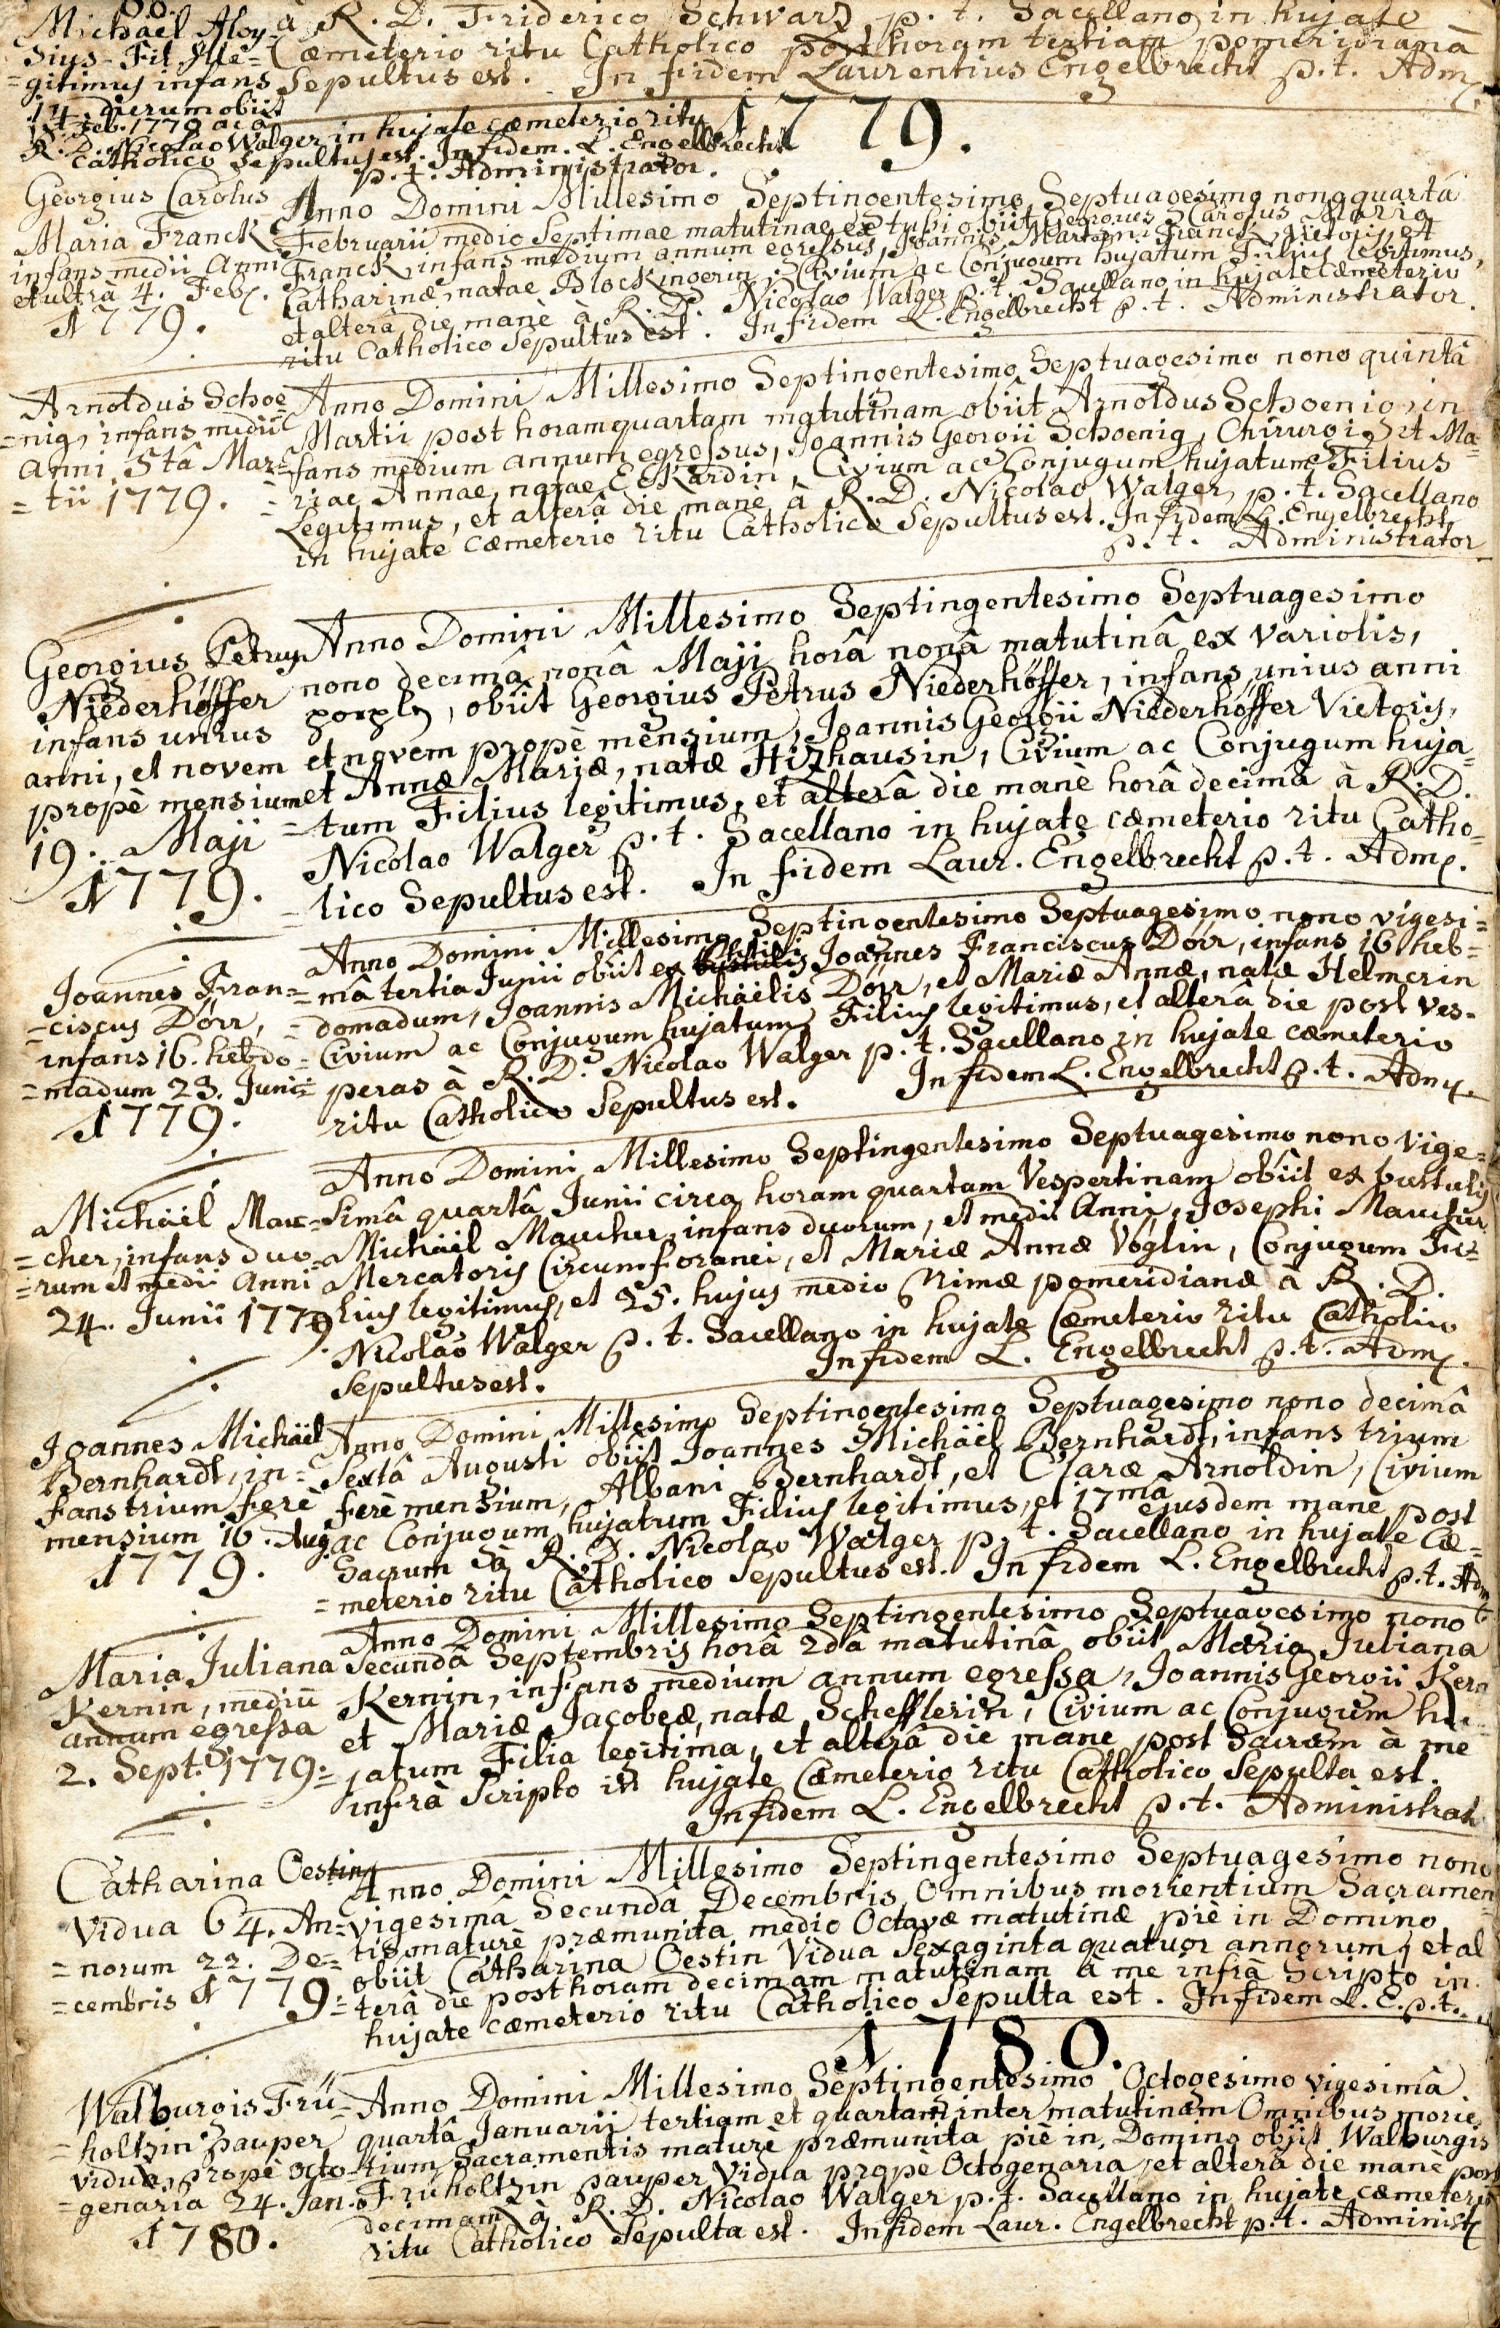 Michaël Aloy-
sius Fil. Ille=
=gitimus infans
14. dierum obiit
Feb. 1779 ac a
R. D. Nicolao Walger in hujate cæmeterio ritu
Catholico Sepultus est. In fidem. L. Engelbrecht
p. t. Administrator.
à R. D. Friderico Schwarz p. t. Sacellano in hujate
Cæmeterio ritu Catholico post horam tertiam pomeridianam
Sepultus est. In fidem Laurentius Engelbrecht p. t. Adm.
1779.
Georgius Carolus
Maria Franck
infans medii Anni
et ultrà 4. Feb.
1779.
Anno Domini Millesimo Septingentesimo Septuagesimo nono quartâ
Februarii medio Septimae matutinae ex tussi obiit Georgius Carolus Maria
Franck, infans medium annum egressus, Joannis Martini Franck, Vietoris, et
Catharinæ, natae Blockingerin, Civium ac Conjugum hujatum Filius legitimus,
et alterâ die manè à R. D. Nicolao Walger p. t. Sacellano in hujate cæmeterio
ritu Catholico Sepultus est. In fidem L. Engelbrecht p. t. Administrator.
Arnoldus Schoe=
=nig, infans medii
Anni 5tâ Mar=
=tii 1779.
Anno Domini Millesimo Septingentesimo Septuagesimo nono quintâ
Martii post horam quartam matutinam obiit Arnoldus Schoenig, in=
=fans medium annum egressus, Joannis Georgii Schoenig, Chirurgi, et Ma=
=riae Annae, natae Eckardin, Civium ac Conjugum hujatum Filius
Legitimus, et alterâ die manè à R. D. Nicolao Walger, p. t. Sacellano
in hujate cæmeterio ritu Catholico Sepultus est. In fidem L. Engelbrecht
p. t. Administrator
Georgius Petrus
Niederhöffer
infans unius
anni, et novem
propè mensium
19. Maji
1779.
Anno Domini Millesimo Septingentesimo Septuagesimo
nono decimâ nonâ Maji horâ nonâ matutinâ ex variolis,
obiit Georgius Petrus Niederhöffer, infans unius anni
et novem propè mensium, Joannis Georgii Niederhöffer Vietoris,
et Annæ Mariæ, natæ Hizhausin, Civium ac Conjugum huja=
=tum Filius legitimus, et alterâ die manè horâ decimâ à R. D.
Nicolao Walger p. t. Sacellano in hujate cæmeterio ritu Catho=
=lico Sepultus est. In fidem Laur. Engelbrecht p. t. Adm.
Joannes Fran=
=ciscus Dörr,
infans 16. hebdo=
=madum 23. Junii
1779.
Anno Domini Millesimo Septingentesimo Septuagesimo nono vigesi=
=mâ tertia Junii obiit ex Joannes Franciscus Dörr, infans 16 heb=
=domadum, Joannis Michaëlis Dörr, et Mariæ Annæ, natæ Helmerin
Civium ac Conjugum hujatum Filius legitimus, et alterâ die post Ves-
peras à R. D. Nicolao Walger p. t. Sacellano in hujate cæmeterio
ritu Catholico Sepultus est. In fidem L. Engelbrecht p. t. Adm.
Michaël Mau=
=cher, infans duo=
=rum et medii Anni
24. Junii 1779.
Anno Domini Millesimo Septingentesimo Septuagesimo nono vige=
=simâ quartâ Junii circa horam quartam Vespertinam obiit ex bustulis
Michaël Maucher, infans duorum, et medii Anni, Josephi Maucher
Mercatoris Circumforanei, et Mariæ Annæ Voglin, Conjugum Fi=
=lius legitimus, et 25. hujus medio Primæ pomeridianæ à R. D.
Nicolao Walger p. t. Sacellano in hujate Cæmeterio ritu Catholico
Sepultus est. In fidem L. Engelbrecht p. t. Adm.
Joannes Michaël
Bernhardt, in=
fans trium ferè
mensium 16. Aug.
1779.
Anno Domini Millesimo Septingentesimo Septuagesimo nono decimâ
Sextâ Augusti obiit Joannes Michaël Bernhardt, infans trium
ferè mensium, Albani Bernhardt, et Claræ Arnoldin, Civium
ac Conjugum hujatum Filius legitimus, et 17mâ ejusdem mane post
Sacrum à R. D. Nicolao Walger p. t. Sacellano in hujate Cæ=
=meterio ritu Catholico Sepultus est. In fidem L. Engelbrecht p. t. Adm.
Maria Juliana
Kernin, mediū
annum egressa
2. Sept. 1779.
Anno Domini Millesimo Septingentesimo Septuagesimo nono
Secundâ Septembris horâ 2dâ matutinâ obiit Maria Juliana
Kernin, infans medium annum egressa, Joannis Georgii Kern
et Mariæ Jacobeæ, natæ Schefflerin, Civium ac Conjugum hu=
=jatum Filia legitima, et alterâ die mane post Sacrum à me
infrà Scripto in hujate Cæmeterio ritu Catholico Sepulta est.
In fidem L. Engelbrecht p. t. Administrat.
Catharina Oestin
Vidua 64. An=
=norum 22. De=
=cembris 1779.
Anno Domini Millesimo Septingentesimo Septuagesimo nono
vigesimâ Secundâ Decembris Omnibus morientium Sacramen=
=tis maturè præmunita medio Octavæ matutinæ piè in Domino
obiit Catharina Oestin Vidua Sexaginta quatuor annorum, et al=
=terâ die post horam decimam matutinam à me infrà Scripto in
hujate cæmeterio ritu Catholico Sepulta est. In fidem L. E. p. t.
1780.
Walburgis Frü=
=holtzin pauper
vidua, propè octo=
=genaria 24. Jan.
1780.
Anno Domini Millesimo Septingentesimo Octogesimo vigesimâ
quartâ Januarii tertiam et quartam inter matutinam Omnibus morien
=tium Sacramentis maturè præmunita piè in Domino obiit Walburgis
Früholtzin pauper Vidua prope Octogenaria, et alterâ die manè post
decimam à R. D. Nicolao Walger p. t. Sacellano in hujate cæmeterio
ritu Catholico Sepulta est. In fidem Laur. Engelbrecht p. t. Administ.